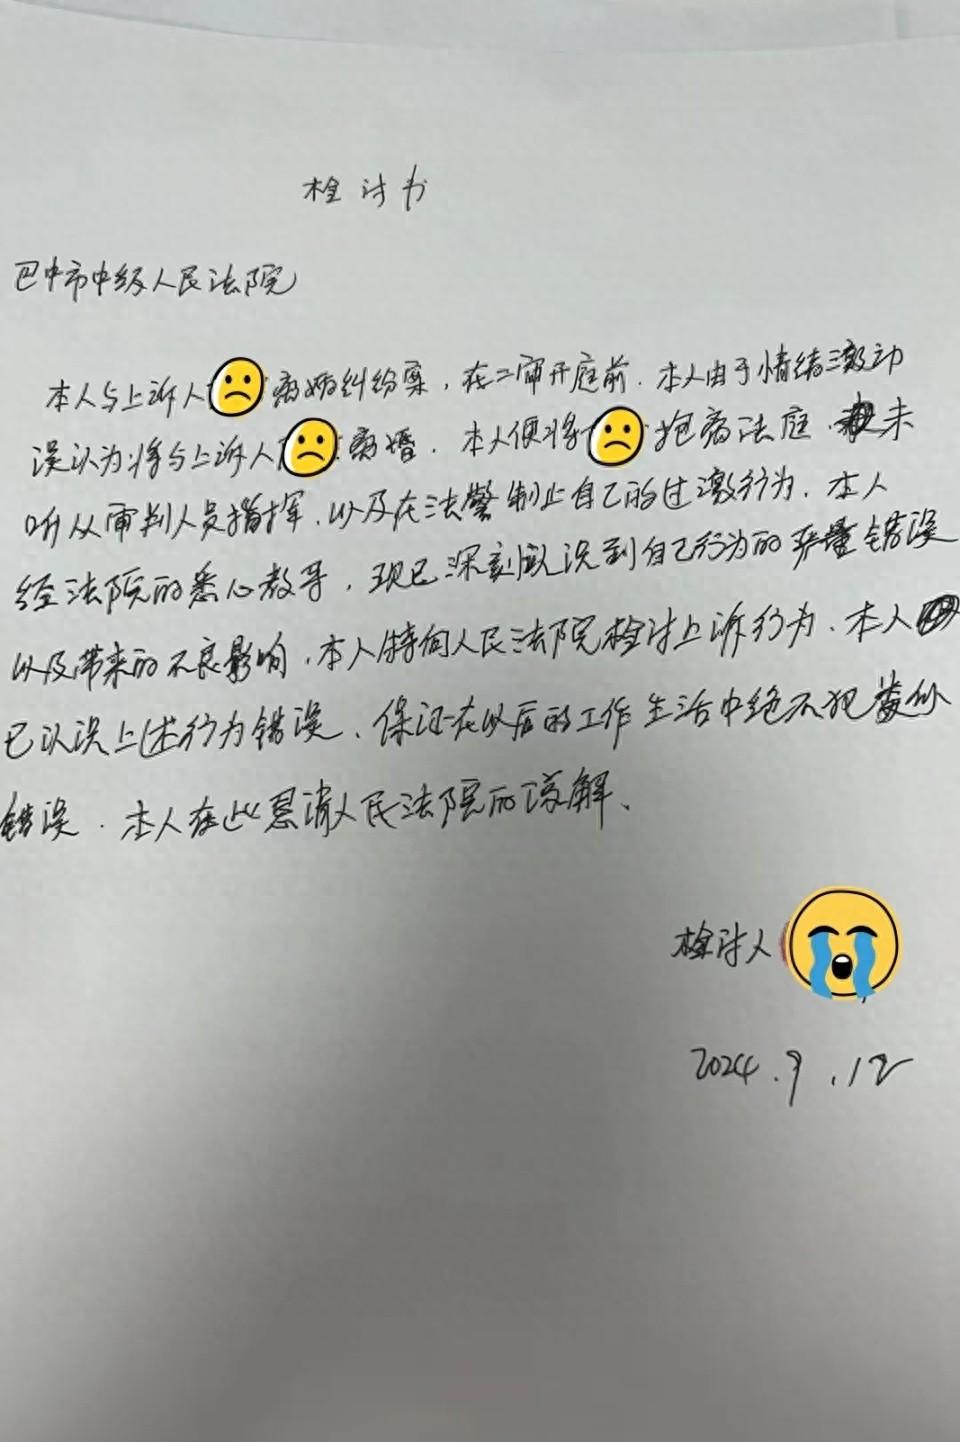 检讨书
巴中市中级人民法院
本人与上诉人 离婚纠纷案，在二审开庭前．本人由于情绪激动
误认为将与上诉人 离婚．本人便将 抱离法庭．未
听从审判人员指挥．以及在法警制止自己的过激行为．本人
经法院的悉心教导，现已深刻认识到自己行为的严重错误
以及带来的不良影响．本人特向人民法院检讨上诉行为．本人
已认识上述行为错误、保证在以后的工作生活中绝不犯类似
错误．本人在此恳请人民法院的谅解、
检讨人
2024.9.12